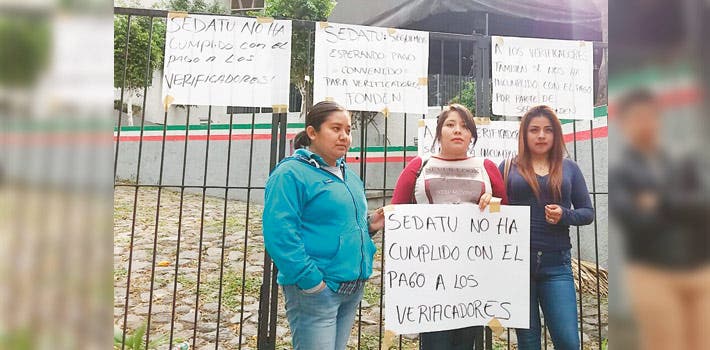 SEDATU NO HA
CUMPLIDO CON EL
PAGO A LOS
VERIFICADORES!
SEDATU: SEGUIMOS
ESPERANDO PAGO
CONVENIDO
PARA VERIFICADORES
FONDEN
A LOS VERIFICADORES
TAMBIEN SE NOS HA
INCUMPLIDO CON EL PAGO
POR PARTE DE
SEDATU NO HA
CUMPLIDO CON EL
PAGO A LOS
VERIFICADORES